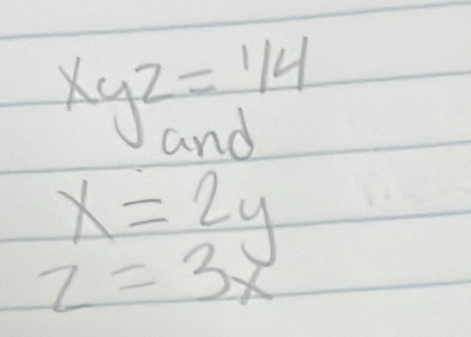 xyz = 1/4
and
x = 2y
z = 3x